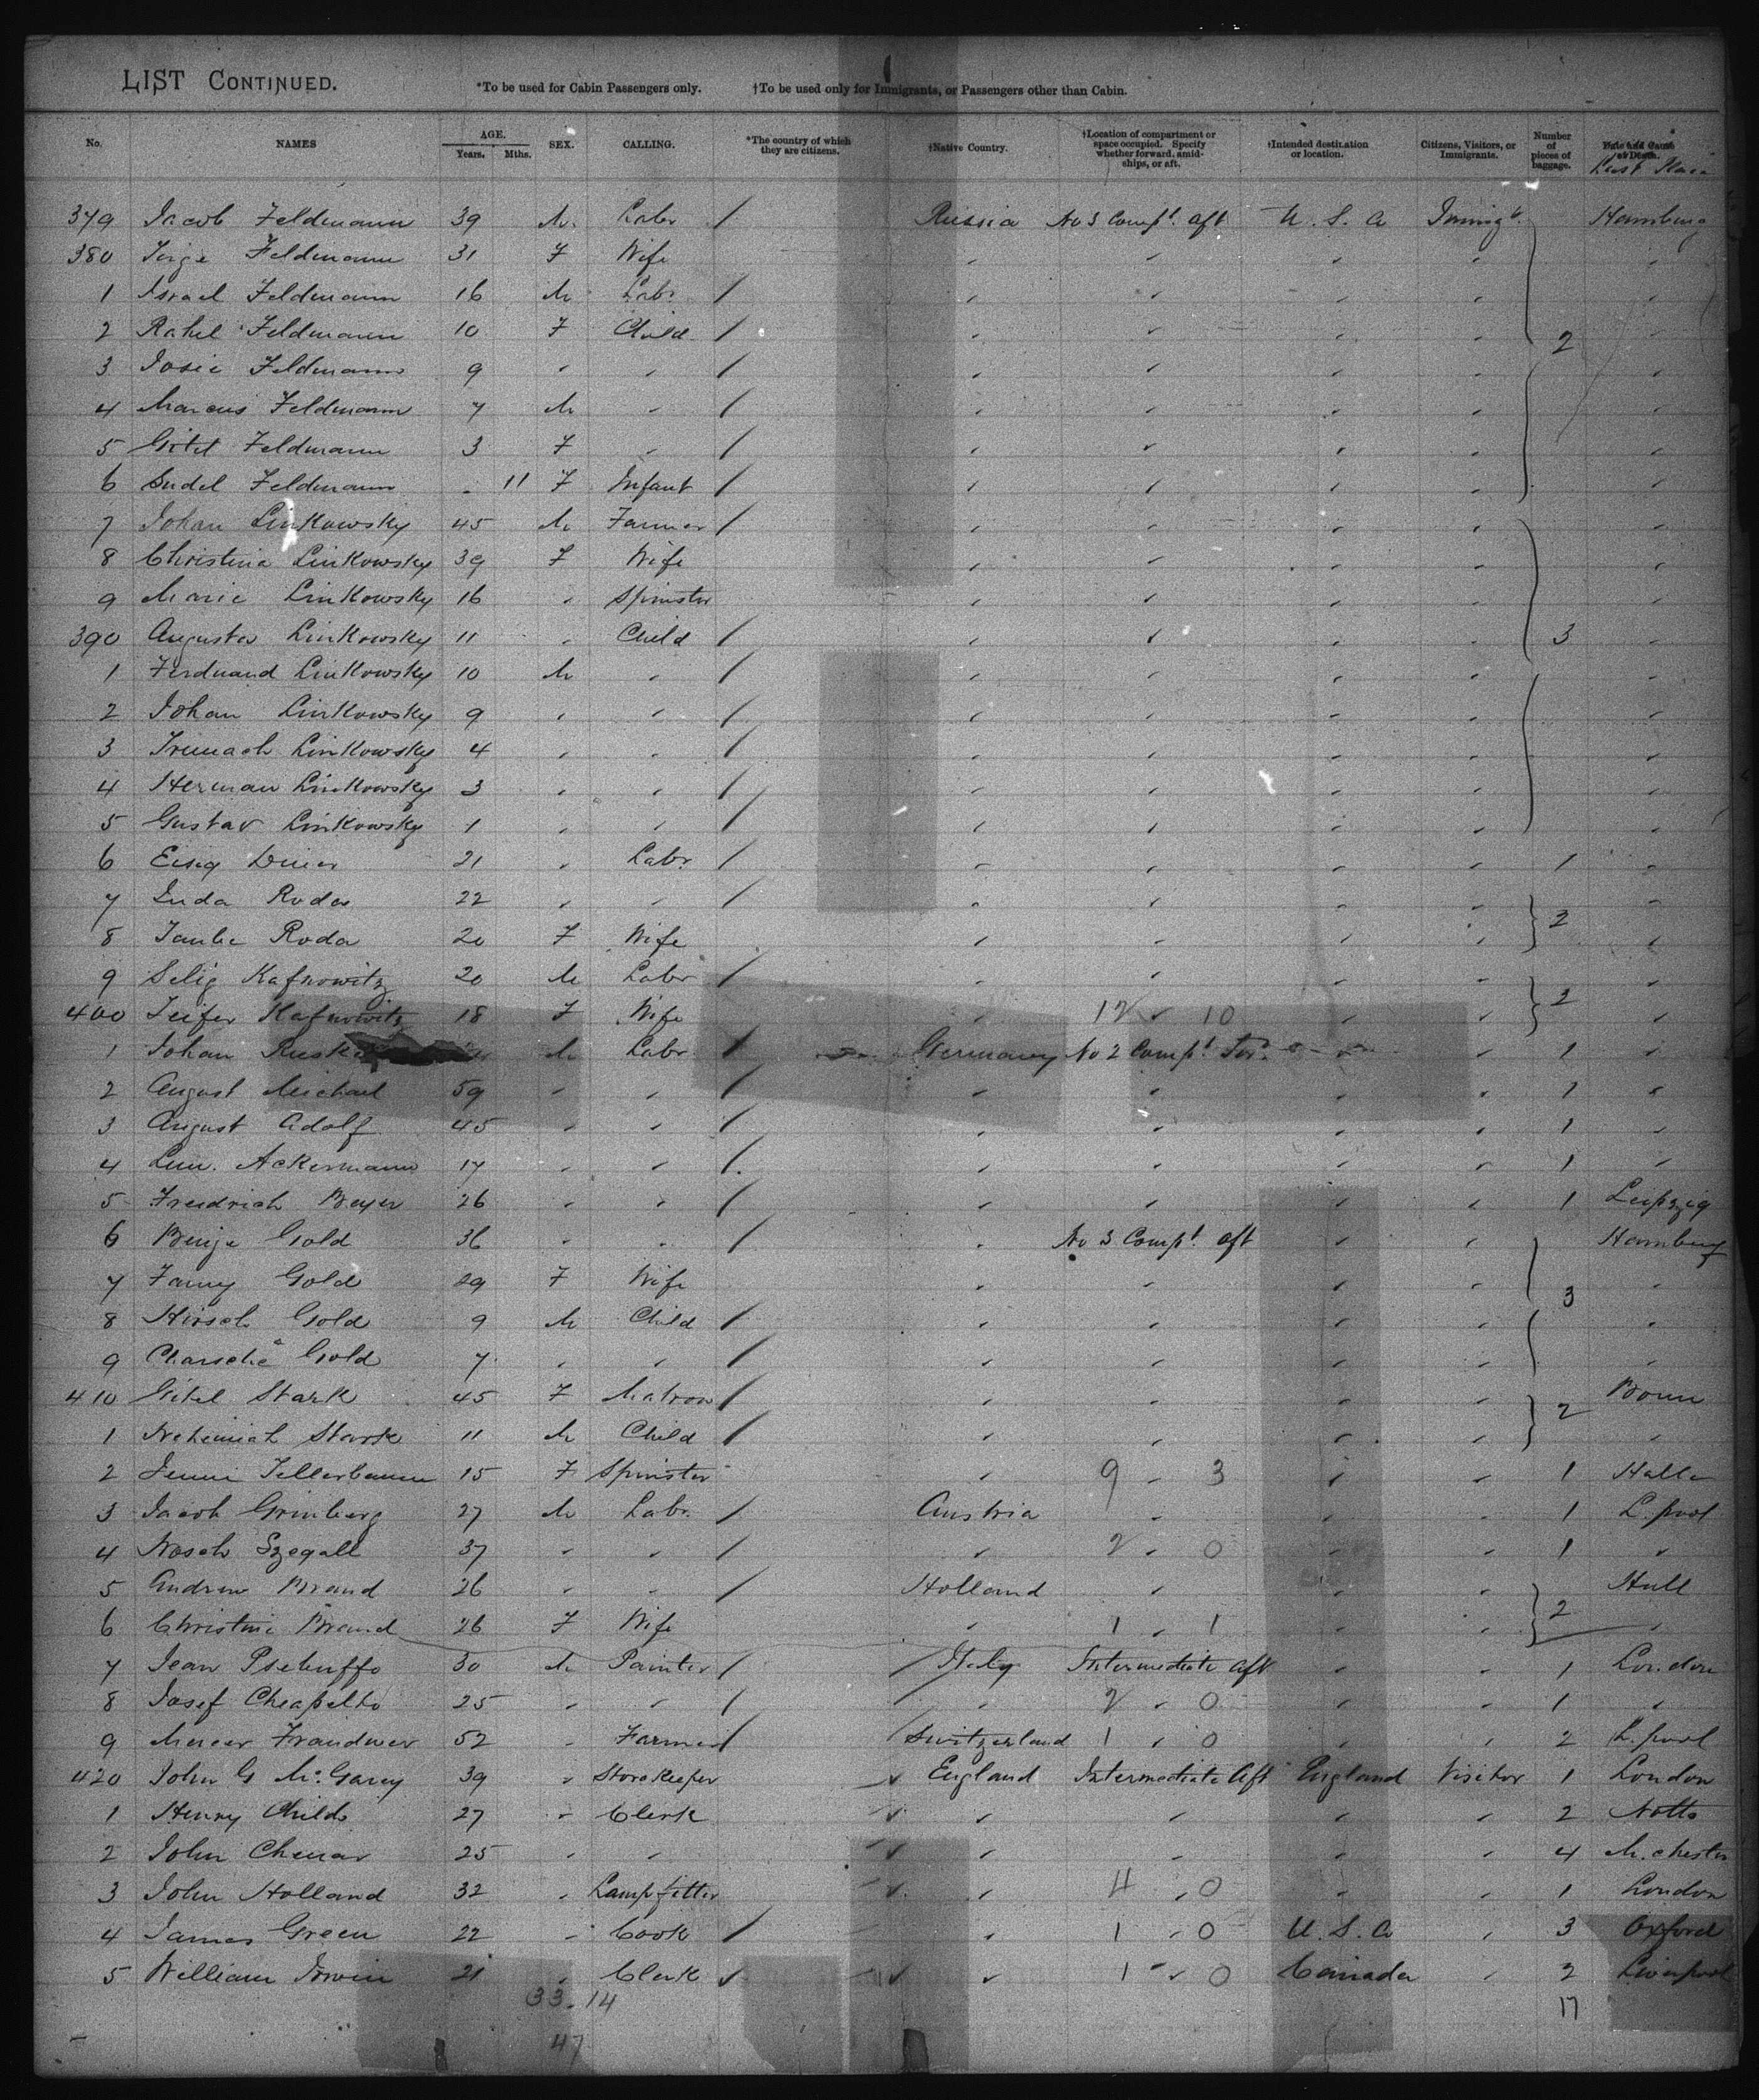 LIST CONTINUED. *To be used for Cabin Passengers only. †To be used only for Immigrants, or Passengers other than Cabin.
No. NAMES AGE. Years. Mths. SEX. CALLING. *The country of which they are citizens. †Native Country. †Location of compartment or space occupied. Specify whether forward, amidships, or aft. †Intended destination or location. Citizens, Visitors, or Immigrants. Number of pieces of baggage. Date and Cause of Death.
Last Place
379 Jacob Feldmann 39 M. Labr / Russia No 3 Compt. aft U. S. A Immigt. Hamburg
380 Feldmann 31 F Wife " " " " "
1 Israel Feldmann 16 M Labr / " " " " "
2 Rahel Feldmann 10 F Child / " " " " 2 "
3 Josie Feldmann 9 " " / " " " " "
4 Marcus Feldmann 7 M " / " " " " "
5 Gitel Feldmann 3 F " / " " " " "
6 Feldmann 11 F Infant / " " " " "
7 Johan Linkowsky 45 M Farmer / " " " " "
8 Christina Linkowsky 39 F Wife " " " " "
9 Marie Linkowsky 16 " Spinster " " " " "
390 Augusta Linkowsky 11 " Child / " " " " 3 "
1 Ferdinand Linkowsky 10 M " / " " " " "
2 Johan Linkowsky 9 " " / " " " " "
3 Linkowsky 4 " " / " " " " "
4 Herman Linkowsky 3 " " / " " " " "
5 Gustav Linkowsky 1 " " / " " " " "
6 21 " Labr / " " " " 1 "
7 Juda Roda 22 " " / " " " " 2 "
8 Taube Roda 20 F Wife " " " " "
9 Selig Kafnowitz 20 M Labr / " " " " 2 "
400 Kafnowitz 18 F Wife " 12 " 10 " " "
1 Johan M Labr / Germany No 2 Compt. For. " " 1 "
2 August Michael 59 " " / " " " " 1 "
3 August Adolf 45 " " / " " " " 1 "
4 Ackermann 17 " " / " " " " 1 "
5 Freidrich Beyer 26 " " / " " " " 1 Leipzig
6 Gold 36 " " / " No 3 Compt. aft " " Hamburg
7 Fanny Gold 29 F Wife " " " " 3 "
8 Hirsch Gold 9 M Child / " " " " "
9 Gold 7 " " / " " " " "
410 Gitel Stark 45 F Matron / " " " " 2
1 Nehemiah Stark 11 M Child / " " " " "
2 Jenni Tellerbaum 15 F Spinster " 9 " 3 " " 1 Halle
3 Jacob Grinberg 27 M Labr. / Austria " " " 1 L. pool
4 Szegall 37 " " / " 2 " 0 " " 1 "
5 Andrew Brand 26 " " / Holland " " " 2 Hull
6 Christina Brand 26 F Wife " 1 " 1 " " "
7 Jean 30 M Painter / / Italy Intermediate aft " " 1 London
8 Josef 25 " " / " 2 " 0 " " 1 "
9 52 " Farmer / / Switzerland 1 " 0 " " 2 L. pool
420 John G McGarey 39 " Storekeeper ✓ England Intermediate Aft England Visitor 1 London
1 Henry Childs 27 " Clerk ✓ " " " " 2 Notts
2 John 25 " " ✓ " " " " 4 M.chester
3 John Holland 32 " Lampfitter ✓ " 4 " 0 " " 1 London
4 James Green 22 " Cook / " 1 " 0 U. S. A " 3 Oxford
5 William Irwin 21 " Clerk ✓ ✓ " 1 " 0 Canada " 2 Liverpool
33. 14 17
47